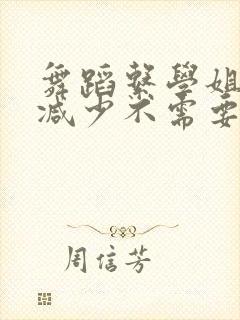 舞蹈系學姐
減少不需要
周信芳